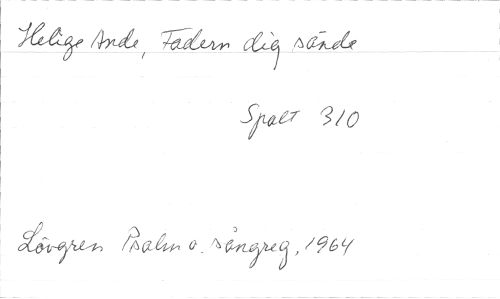 Helige Ande, Fadern dig sände
Spalt 310
Lövgren Psalm o. sångreg, 1964